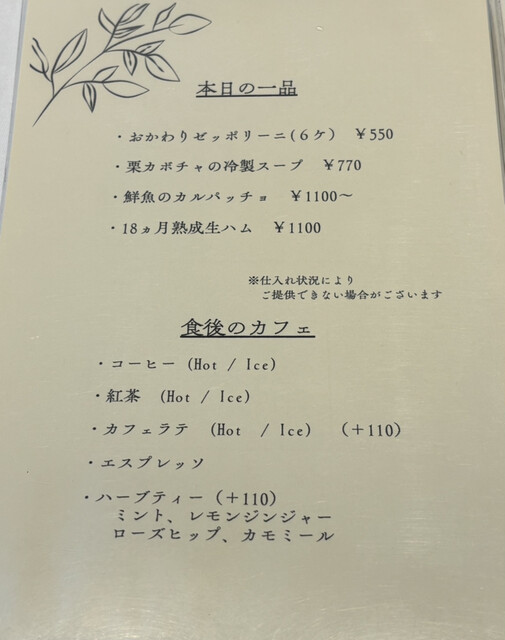 本日の一品
・おかわりゼッポリーニ(6ケ) ¥550
・栗カボチャの冷製スープ ¥770
・鮮魚のカルパッチョ ¥1100〜
・18ヵ月熟成生ハム ¥1100
※仕入れ状況により
ご提供できない場合がございます
食後のカフェ
・コーヒー (Hot / Ice)
・紅茶 (Hot / Ice)
・カフェラテ (Hot / Ice) (+110)
・エスプレッソ
・ハーブティー(+110)
ミント、レモンジンジャー
ローズヒップ、カモミール